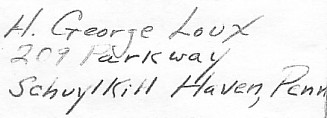 H. George Loux
209 Parkway
Schuylkill Haven, Penn